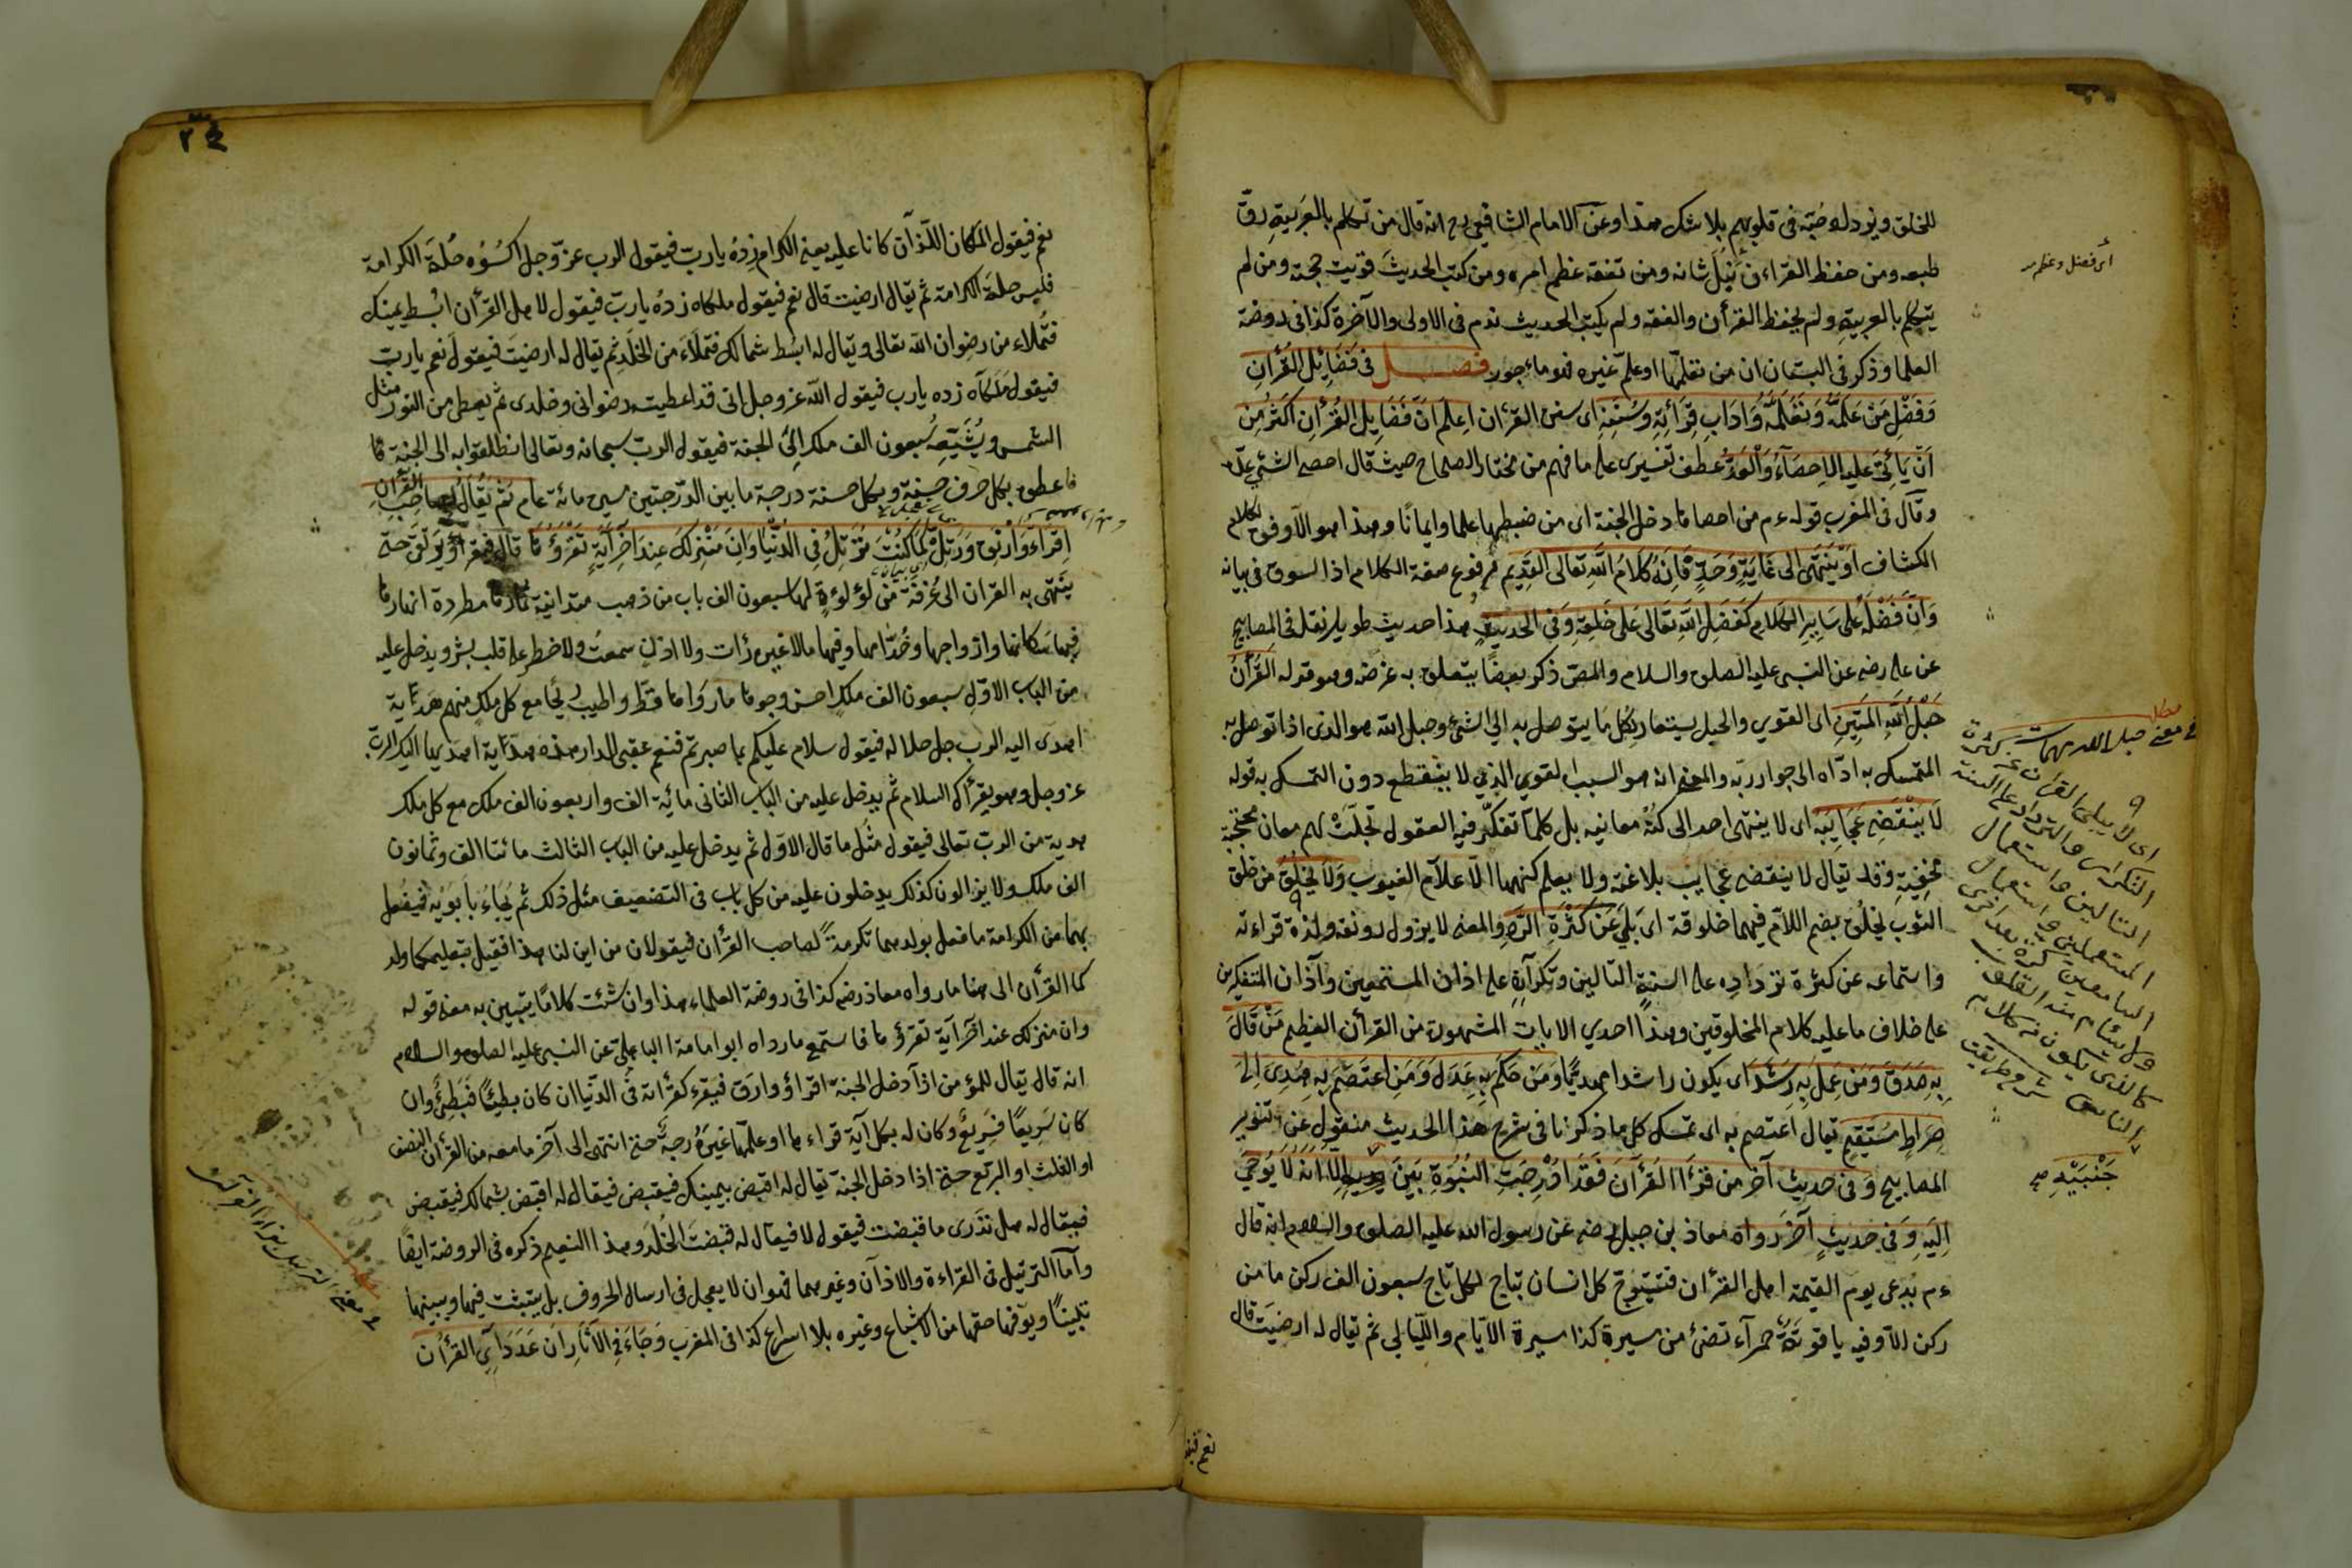 للخلق ونور دله محبّة فى قلوبهم بلا شك هذا وعن الامام الشافعى رح انه قال من تكلم بالعربية رقّ
طبعه ومن حفظ القراءن نَبُلَ شانه ومن تفقه عظم امره ومن كتب الحديث قويت حجته ومن لم
يتكلم بالعربية ولم يحفظ القرأن والفقه ولم يكتب الحديث ندم فى الاولى والآخرة كذا فى روضة
العلما وذكر فى البستان ان من تعلّمها او علّم غيره فهو ماءجور فصل فى فَضَائِلِ القُرْأنِ
وَفَضْلِ مَنْ عَلَّمَهُ وَتَعَلَّمَهُ وَادَابِ قِرَائَتِهِ وَسُنَنِهِ اى سنن القرءان اعلم انّ فَضَايِلَ القُرْأنِ اكْثَرُ مِنْ
اَنْ يَاْتِىَ عَلَيهِ الاِحصَاءُ وَالْعَدُّ عطف تفسيرى على ما فهم من مختار الصحاح حيث قال احصى الشئ عدّه
وقال فى المغرب قوله ءم من احصاها دخل الجنة اى من ضبطها علما وايمانًا وهذا هو الاوفق لكلام
الكشاف اَوْ يَنتَهِىَ الى غَايَةٍ وَحَدٍّ فَاِنَهُ كَلَامُ اللّٰهِ تَعَالى القَدِيمِ مرفوع صفة الكلام اذ السوق فى بيانه
وَانَّ فَضْلَهُ عَلى سَايِرِ الكَلامِ كَفَضْلِ اللّٰهِ تَعَالى عَلى خَلقِهِ وَفى الحَديثِ هذا حديث طويل نقل فى المصابيح
عن على رضه عن النبى عليه الصلوة والسلام والمص ذكر بعضًا يتعلق به غرضه وهو قوله القُرْأنُ
حَبْلُ اللّٰهِ المَتِينِ اى القوي والحبل يستعار لكل ما يتوصل به الى الشئ وحبل الله هو الذى اذا توصل به
المتمسك به ادّاه الى جوار ربّه والمعنى انه هو السبب القوي الذي لا ينقطع دون التمسك به قوله
لَا يَنْقَضِى عَجَايِبُه اى لا ينتهى احد الى كنه معانيه بل كلما تفكّر فيه العقول تجلّت لهم معان محتجبة
مخفيةٍ وقد يقال لا ينقضى عجايب بلاغته ولا يعلم كنهها الّا علام الغيوب وَلَا يَخْلُقُ من خلق
الثوب يخلُق بضم اللام فيهما خلوقة اى بَلِىَ عَن كَثْرَةِ الرَّدِّ والمعنى لا يزول رونقه ولذة قراءته
واستماعه عن كثرة تردادِه على السنة التالين وتكراره على اذان المستمعين وآذان المتفكرين
على خلاف ما عليه كلام المخلوقين وهذا احدي الايات المشهورة من القرأن العظيم مَنْ قَالَ
بِهِ صَدَقَ وَمَن عَمِلَ بِهِ رَشَدَ اى يكون راشدا مهديًّا وَمَن حَكَمَ بِهِ عَدَلَ وَمَنِ اعْتَصَمَ بِهِ هُدِىَ اِلى
صِرَاطٍ مُسْتَقِيمٍ يقال اعتصم به اى تمسك كل ما ذكرنا فى شرح هذا الحديث منقول عن تنوير
المصابيح وَفى حديث آخر من قَرَأَ القُرْآنَ فَقَدْ اُدْرِجَتِ النُبُوَّةِ بَينَ اِلّا اَنَّهُ لَا يُوحَىٰ
اِلَيْهِ وَفى حديثٍ آخَرَ رَوَاهُ معاذ بن جبل رضه عن رسول الله عليه الصلوة والسلام انه قال
ءم يدعى يوم القيمة اهل القرأن فتيتوّج كل انسان بتاج لكل تاج سبعون الف ركن ما من
ركن الا وفيه ياقوتة حمرآء تضئ من مسيرة كذا مسيرة الايّام والليالي ثم يقال له ارضيت قال
نعم فيقو
اى فضل وعظم
فى معنى حبل الله
اى لا يبلى القرآن عن كثرة
التكرار والترداد على السنة
التالين واستعمال
جَنْبَيْهِ صح
٢٤
نعم فيقول الملكان اللذان كانا عليه يعنى الكرام زِدْهُ يا ربّ فيقول الرب عزّ وجل اكسُوُه حُلّةَ الكرامة
فلبس حلة الكرامة ثم يقال ارضيت قال نعم فيقول ملكاه زدهُ يا ربّ فيقول لاهل القرْأن ابْسط يمينك
فتُملاء من رضوان الله تعالى ويقال له ابسُط شمالك فتملَاء من الخلد ثم يقال له ارضيتَ فيقولَ نعم يا ربّ
فيقول ملكآه زده يا رب فيقول اللّه عز وجل انى قد اعطيته رضوانى وخلدى ثم يعطى من النور مثل
الشمس ويُشَيّعه سبعون الف ملك الى الجنة فيقول الربّ سبحانه وتعالى انطلقوا به الى الجنة
فاعطوه بكل حرف حسنة وبكل حسنة درجة ما بين الدّرجتين مسيرة مائة عام ثم يُقَالُ لِصاحِبِ القُرْآنِ
اِقْرَاء وَارْتَقِ وَرَتِّلْ كَمَا كُنْتَ تُرَتِّلُ فِى الدُنْيَا وَاِنَ مَنْزِلَكَ عِندَ آخِرِ آيَةٍ تَقْرَؤُهَا قال فيقرأ ويرقى حتى
ينتهى به القران الى غُرفة من لؤلؤةٍ لها سبعون الف باب من ذهب متدانية ثمارها مطردة انهارها
فيها سكانها وازواجها وخُدّامها وفيها ما لا عين رأت ولا اذن سمعت ولا خطر على قلب بشر ويدخل عليه
من الباب الاوّل سبعون الف ملك احسن وجوها ما رَوَاها قطّ واطيب ريحًا مع كل ملك منهم هَدَاية
اهدى اليه الرب جل جلاله فيقول سلام عليكم بما صبرتم فنعم عقبى الدار هذه هداية اهديها اليك الربّ
عز وجل وهو يقرأك السلام ثم يدخل عليه من الباب الثانى مائة الف واربعون الف ملك مع كل ملك
هدية من الربّ تعالى فيقول مثل ما قال الاوّل ثم يدخل عليه من الباب الثالث مائتا الف وثمانون
الف ملك ولا يزالون كذلك يدخلون عليه من كل باب فى التضعيف مثل ذلك ثم يُجَاءُ بأَبوَيْه فيفعل
بهما من الكرامة ما فعل بولدهما تكرمةً لصاحب القرْأن فيقولان من اين لنا هذا فقيل بتعليمكما ولد
كما القرأن الى هنا ما رواه معاذ رضه كذا فى روضة العلماء هذا وان شئت كلامًا يتبين به معنى قوله
وان منزلك عند آخر آية تقرؤها فاستمع ما رواه ابو امامة الباهلىّ عن النبى عليه الصلوة والسلام
انه قال يقال للمؤمن اذا دخل الجنة اقراؤ وارَق فيقرء كقرأته فى الدّنيا ان كان بطيئًا فبَطِئٌ وان
كان سَريعًا فسَريعٌ وكان له بكل آية قراءها او علّمها غيرَهُ درجةً حتى انتهى الى آخر ما معه من القرأن النصف
او الثلث او الربع حتى اذا دخل الجنة يقال له اقبض بيمينك فيقبض فيقال له اقبض بشمالك فيقبض
فيقال له هل تدرى ما قبضت فيقول لا فيقال له قبضتَ الخُلدَ وهذا النعيم ذكره فى الروضة ايضًا
وآما الترتيل فى القراءة والاذان وغيرهما فهو ان لا يعجل فى ارسال الحروف بل يتبثت فيها ويبينها
تبيينًا ويوفّيها حقها من الاشباع وغيره بلا اسراع كذا فى المغرب وَجَاءَ فِى الآثَارِ ان عَدَدَ آىِ القرْأن